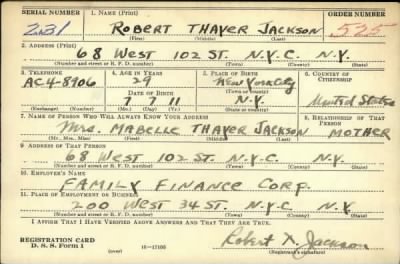 SERIAL NUMBER 1. NAME (Print) ORDER NUMBER
231 ROBERT THAYER JACKSON 525
(First) (Middle) (Last)
2. ADDRESS (Print)
68 WEST 102 ST. N.Y.C. N.Y.
(Number and street or R. F. D. number) (Town) (County) (State)
3. TELEPHONE 4. AGE IN YEARS 5. PLACE OF BIRTH 6. COUNTRY OF CITIZENSHIP
AC4-8906 29 New York City
DATE OF BIRTH (Town or county)
7 7 11 N.Y. United States
(Exchange) (Number) (Mo.) (Day) (Yr.) (State or country)
7. NAME OF PERSON WHO WILL ALWAYS KNOW YOUR ADDRESS 8. RELATIONSHIP OF THAT PERSON
Mrs. MABELLE THAYER JACKSON MOTHER
(Mr., Mrs., Miss) (First) (Middle) (Last)
9. ADDRESS OF THAT PERSON
68 WEST 102 ST. N.Y.C. N.Y.
(Number and street or R. F. D. number) (Town) (County) (State)
10. EMPLOYER'S NAME
FAMILY FINANCE CORP.
11. PLACE OF EMPLOYMENT OR BUSINESS
200 WEST 34 ST. N.Y.C. N.Y.
(Number and street or R. F. D. number) (Town) (County) (State)
I AFFIRM THAT I HAVE VERIFIED ABOVE ANSWERS AND THAT THEY ARE TRUE.
REGISTRATION CARD
D. S. S. FORM 1 16—17105 Robert T. Jackson
(Registrant's signature)